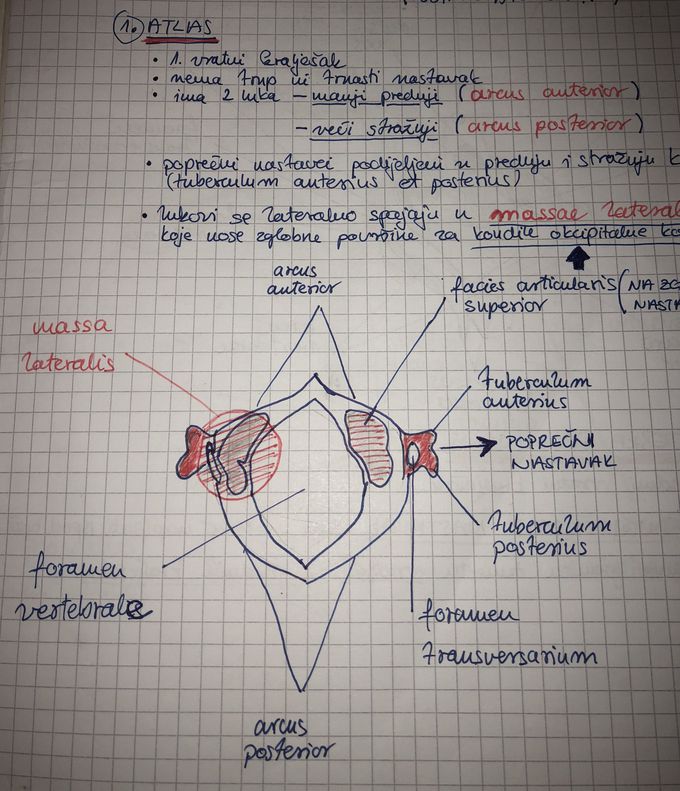 1. ATLAS
• 1. vratni kralješak
• nema trup ni trnasti nastavak
• ima 2 luka – manji prednji (arcus anterior)
– veći stražnji (arcus posterior)
• poprečni nastavci podijeljeni u prednju i stražnju k
(tuberculum anterius et posterius)
• lukovi se lateralno spajaju u massae lateral
koje nose zglobne površine za kondile okcipitalne ko
arcus
anterior
facies articularis (NA ZG
superior NASTA
massa
lateralis
tuberculum
anterius
POPREČNI
NASTAVAK
tuberculum
posterius
foramen
vertebrale
foramen
transversarium
arcus
posterior